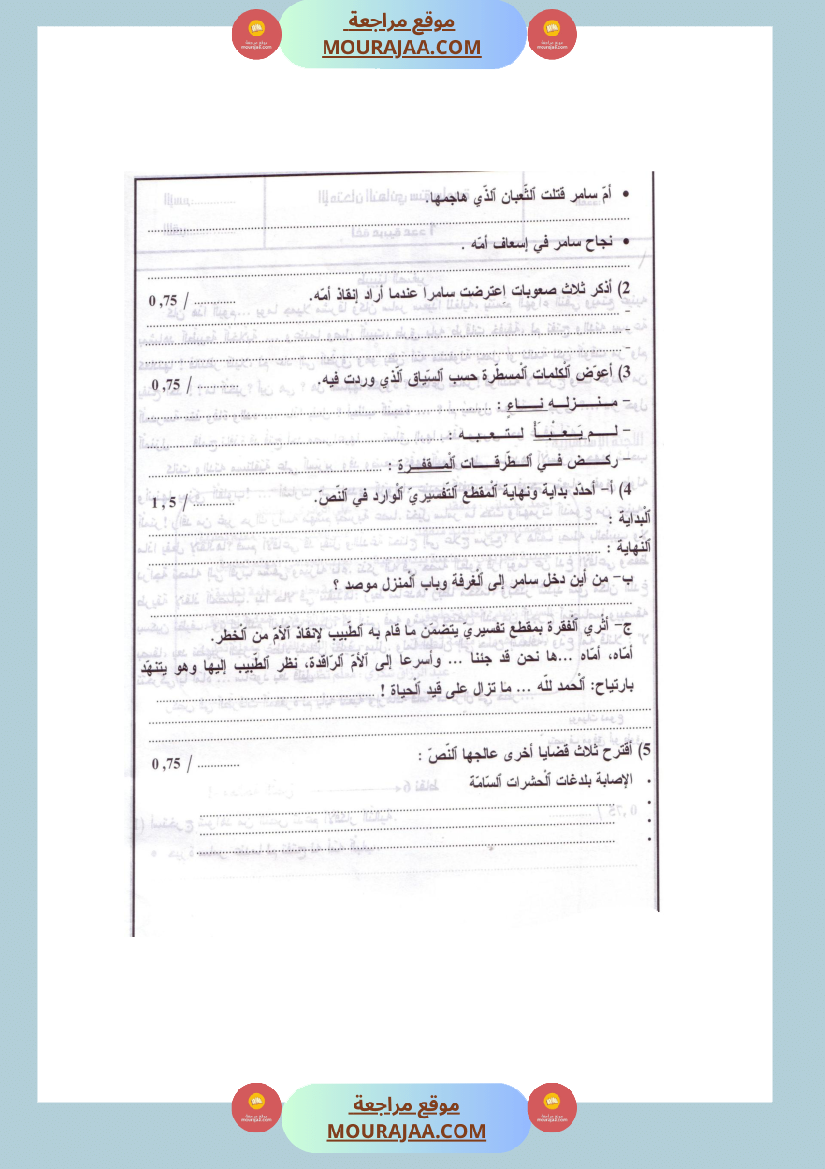 موقع مراجعة
MOURAJAA.COM
• أمّ سامر قتلت ٱلثّعبان ٱلذّي هاجمها.
• نجاح سامر في إسعاف أمّه .
2) أذكر ثلاث صعوبات إعترضت سامرا عندما أراد إنقاذ أمّه. ............ / 0,75
-
-
-
3) أعوّض ٱلْكلمات ٱلْمسطّرة حسب ٱلسّياق ٱلّذي وردت فيه. ............ / 0,75
- مـنــــزلــه نــــاء :
- لــــم يَــعْــبَــأْ لــتــعــبــه :
- ركــــض فــــي ٱلــطّرقــــات ٱلْــمــقــفــرة :
4) أ- أحدّد بداية ونهاية ٱلْمقطع ٱلتّفسيريّ ٱلْوارد في ٱلنّصّ. ............ / 1,5
ٱلْبداية :
ٱلنّهاية :
ب- من أين دخل سامر إلى ٱلْغرفة وباب ٱلْمنزل موصد ؟
ج- أثري ٱلْفقرة بمقطع تفسيريّ يتضمّن ما قام به ٱلطّبيب لإنقاذ ٱلأمّ من ٱلْخطر.
أمّاه، أمّاه ...ها نحن قد جئنا ... وأسرعا إلى ٱلأمّ ٱلرّاقدة، نظر ٱلطّبيب إليها وهو يتنهّد
بارتياح: ٱلْحمد للّه ... ما تزال على قيد ٱلْحياة !
5) أقترح ثلاث قضايا أخرى عالجها ٱلنّصّ : ............ / 0,75
• الإصابة بلدغات ٱلْحشرات ٱلسّامّة
•
•
•
موقع مراجعة
MOURAJAA.COM